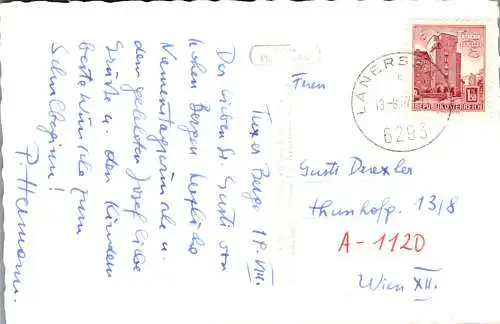 Tuxer Berge 19. VIII.
Der lieben Fr. Gusti von
hohen Bergen herzliche
Namenstagswünsche u.
dem geliebten Josef liebe
Grüße u. den Kindern
beste Wünsche zum
Schulbeginn!
P. Hermann.
LANERS
19.-8.
6293
REPUBLIK ÖSTERREICH
Gusti Drexler
13/8
A-1120
Wien XII.